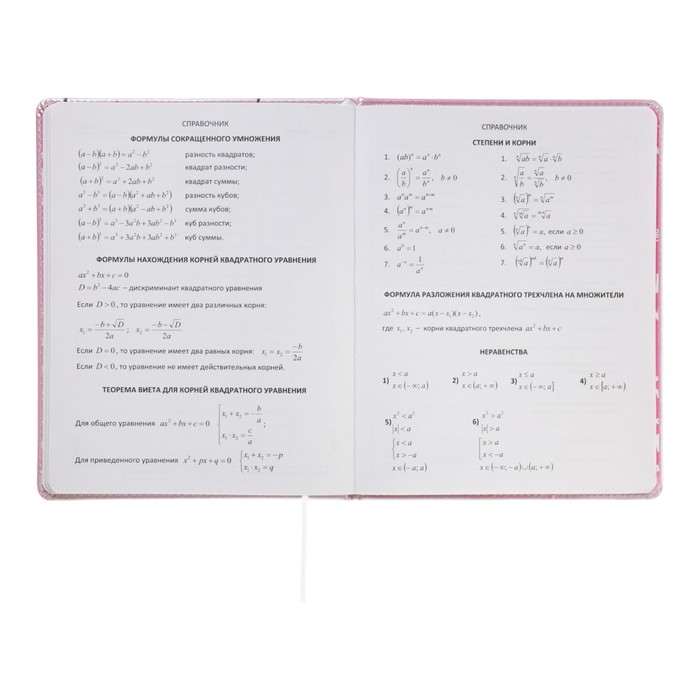 СПРАВОЧНИК
ФОРМУЛЫ СОКРАЩЕННОГО УМНОЖЕНИЯ
(a−b)(a+b)=a²−b² разность квадратов;
(a−b)²=a²−2ab+b² квадрат разности;
(a+b)²=a²+2ab+b² квадрат суммы;
a³−b³=(a−b)(a²+ab+b²) разность кубов;
a³+b³=(a+b)(a²−ab+b²) сумма кубов;
(a−b)³=a³−3a²b+3ab²−b³ куб разности;
(a+b)³=a³+3a²b+3ab²+b³ куб суммы.
ФОРМУЛЫ НАХОЖДЕНИЯ КОРНЕЙ КВАДРАТНОГО УРАВНЕНИЯ
ax²+bx+c=0
D=b²−4ac − дискриминант квадратного уравнения
Если D>0, то уравнение имеет два различных корня:
x₁=(−b+√D)/2a; x₂=(−b−√D)/2a
Если D=0, то уравнение имеет два равных корня: x₁=x₂=−b/2a
Если D<0, то уравнение не имеет действительных корней.
ТЕОРЕМА ВИЕТА ДЛЯ КОРНЕЙ КВАДРАТНОГО УРАВНЕНИЯ
Для общего уравнения ax²+bx+c=0 {x₁+x₂=−b/a
x₁·x₂=c/a;
Для приведенного уравнения x²+px+q=0 {x₁+x₂=−p
x₁·x₂=q
СПРАВОЧНИК
СТЕПЕНИ И КОРНИ
1. (ab)ⁿ=aⁿ·bⁿ
2. (a/b)ⁿ=aⁿ/bⁿ, b≠0
3. aⁿaᵐ=aⁿ⁺ᵐ
4. (aⁿ)ᵐ=aⁿ·ᵐ
5. aⁿ/aᵐ=aⁿ⁻ᵐ, a≠0
6. a⁰=1
7. a⁻ⁿ=1/aⁿ
1. ⁿ√ab=ⁿ√a·ⁿ√b
2. ⁿ√(a/b)=ⁿ√a/ⁿ√b, b≠0
3. (ⁿ√a)ᵐ=ⁿ√aᵐ
5. (ⁿ√a)ⁿ=a, если a≥0
6. ⁿ√aⁿ=a, если a≥0
ФОРМУЛА РАЗЛОЖЕНИЯ КВАДРАТНОГО ТРЕХЧЛЕНА НА МНОЖИТЕЛИ
ax²+bx+c=a(x−x₁)(x−x₂),
где x₁,x₂ − корни квадратного трехчлена ax²+bx+c
НЕРАВЕНСТВА
1) x<a
x∈(−∞;a)
2) x>a
x∈(a;+∞)
3) x≤a
x∈(−∞;a]
4) x≥a
x∈[a;+∞)
5) x²<a²
|x|<a
{x<a
x>−a
x∈(−a;a)
6) x²>a²
|x|>a
[x>a
x<−a
x∈(−∞;−a)∪(a;+∞)